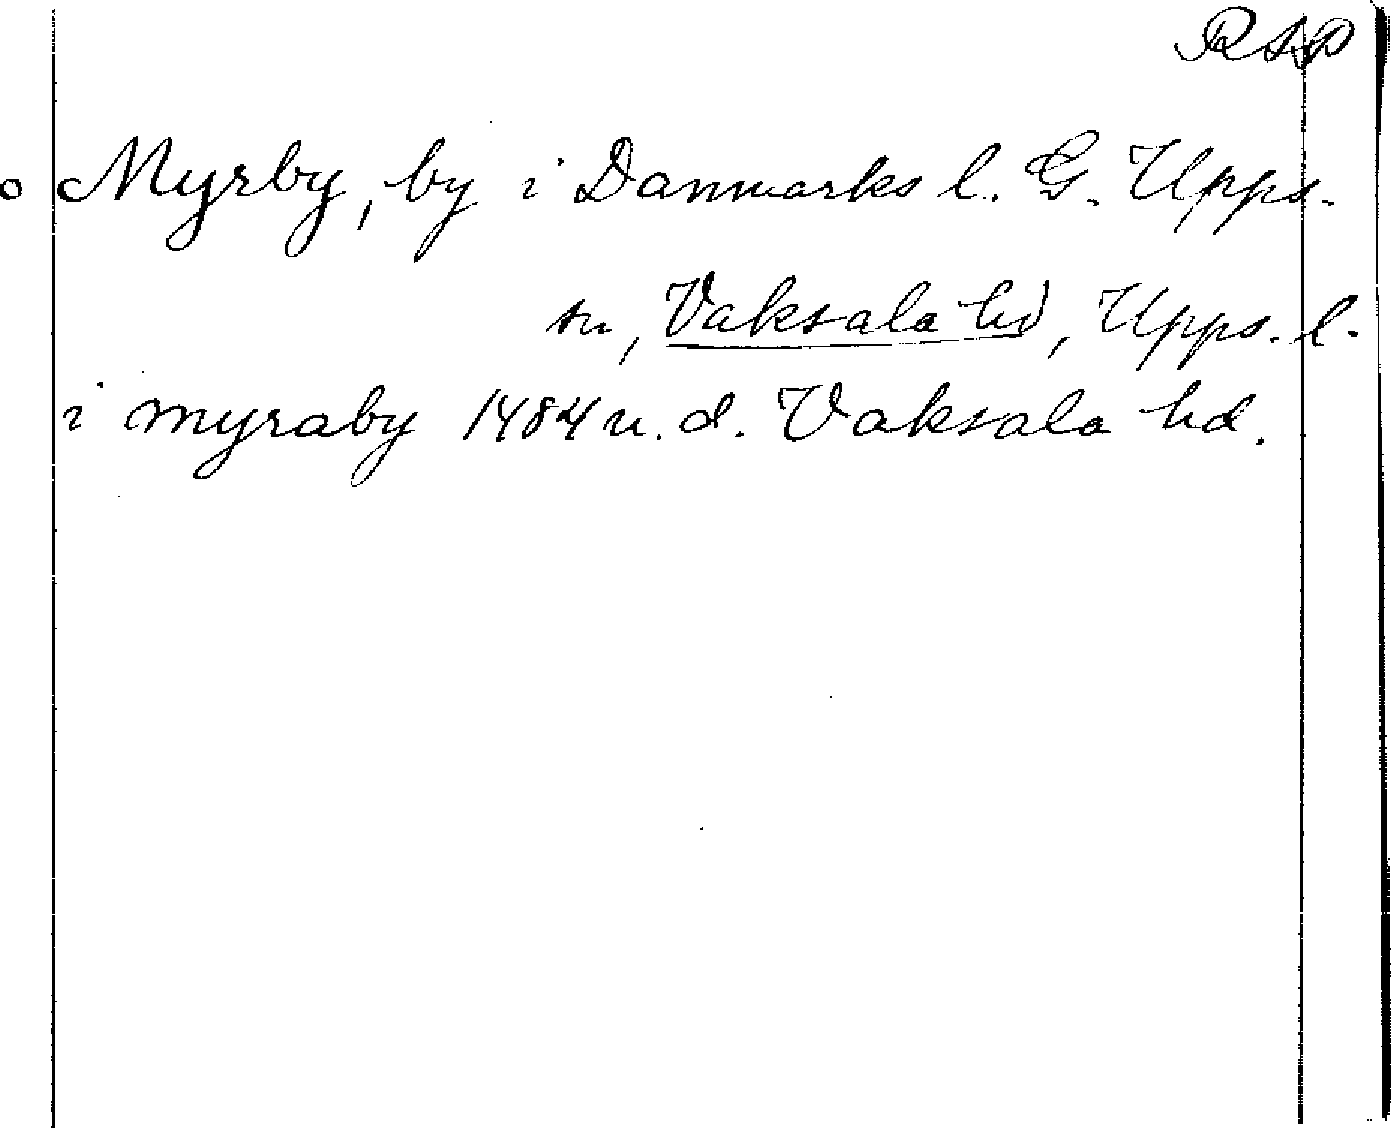 RAP
o Myrby, by i Danmarks l. G. Upps.
sn, Vaksala hd, Upps. l.
i myraby 1484 u. d. Vaksala hd.